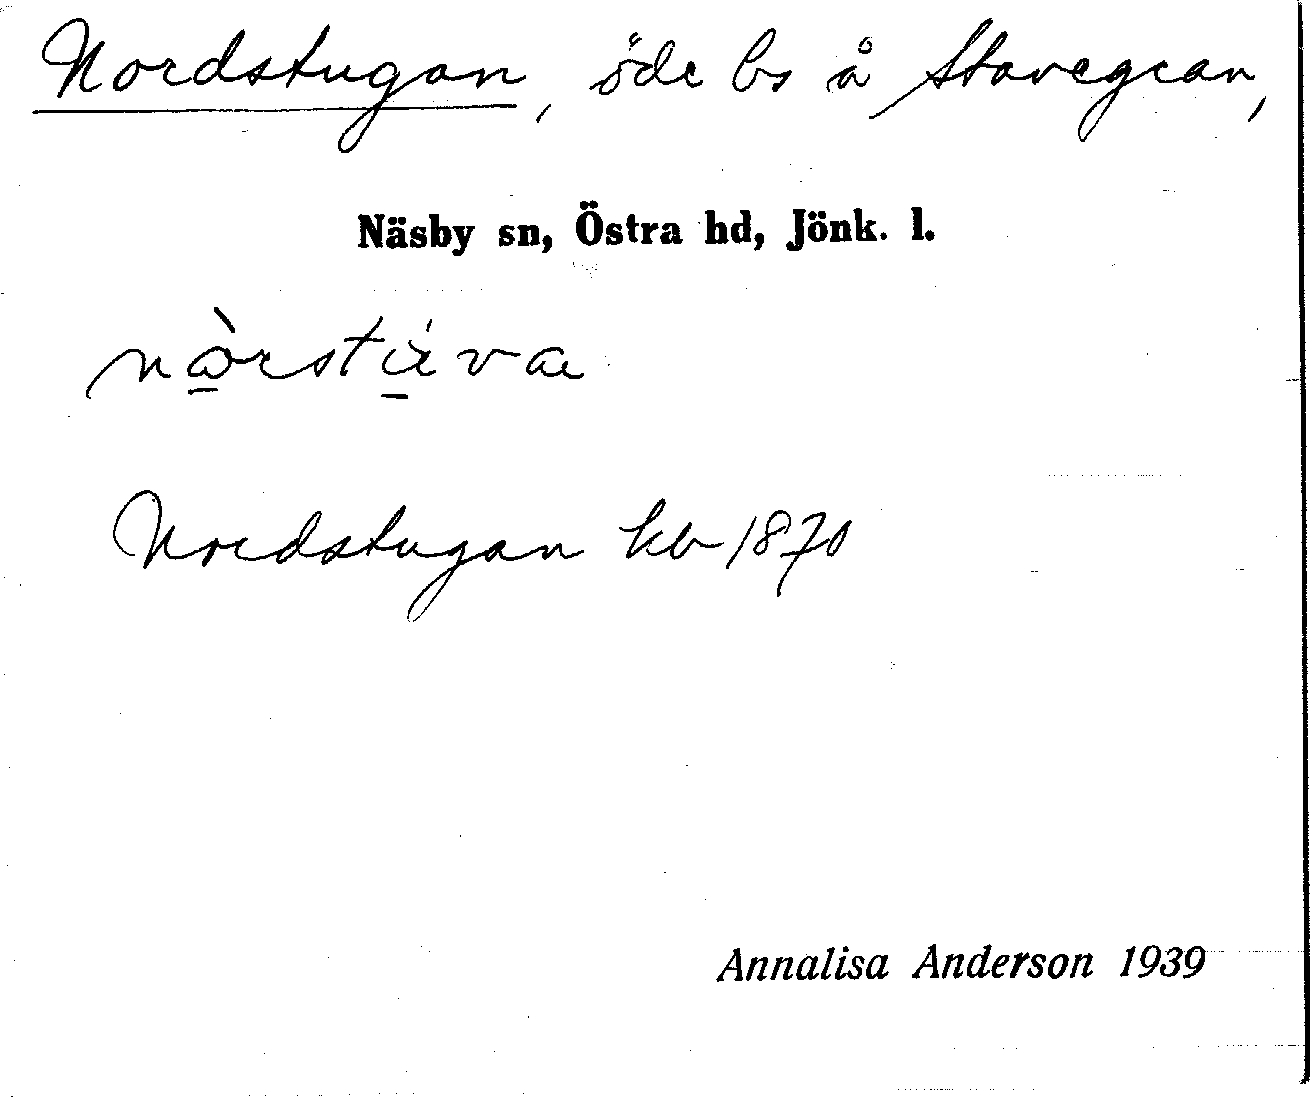 Nordstugan, öde bs å Stavegean,
Näsby sn, Östra hd, Jönk. l.
Nordstugan kb 1870
Annalisa Anderson 1939